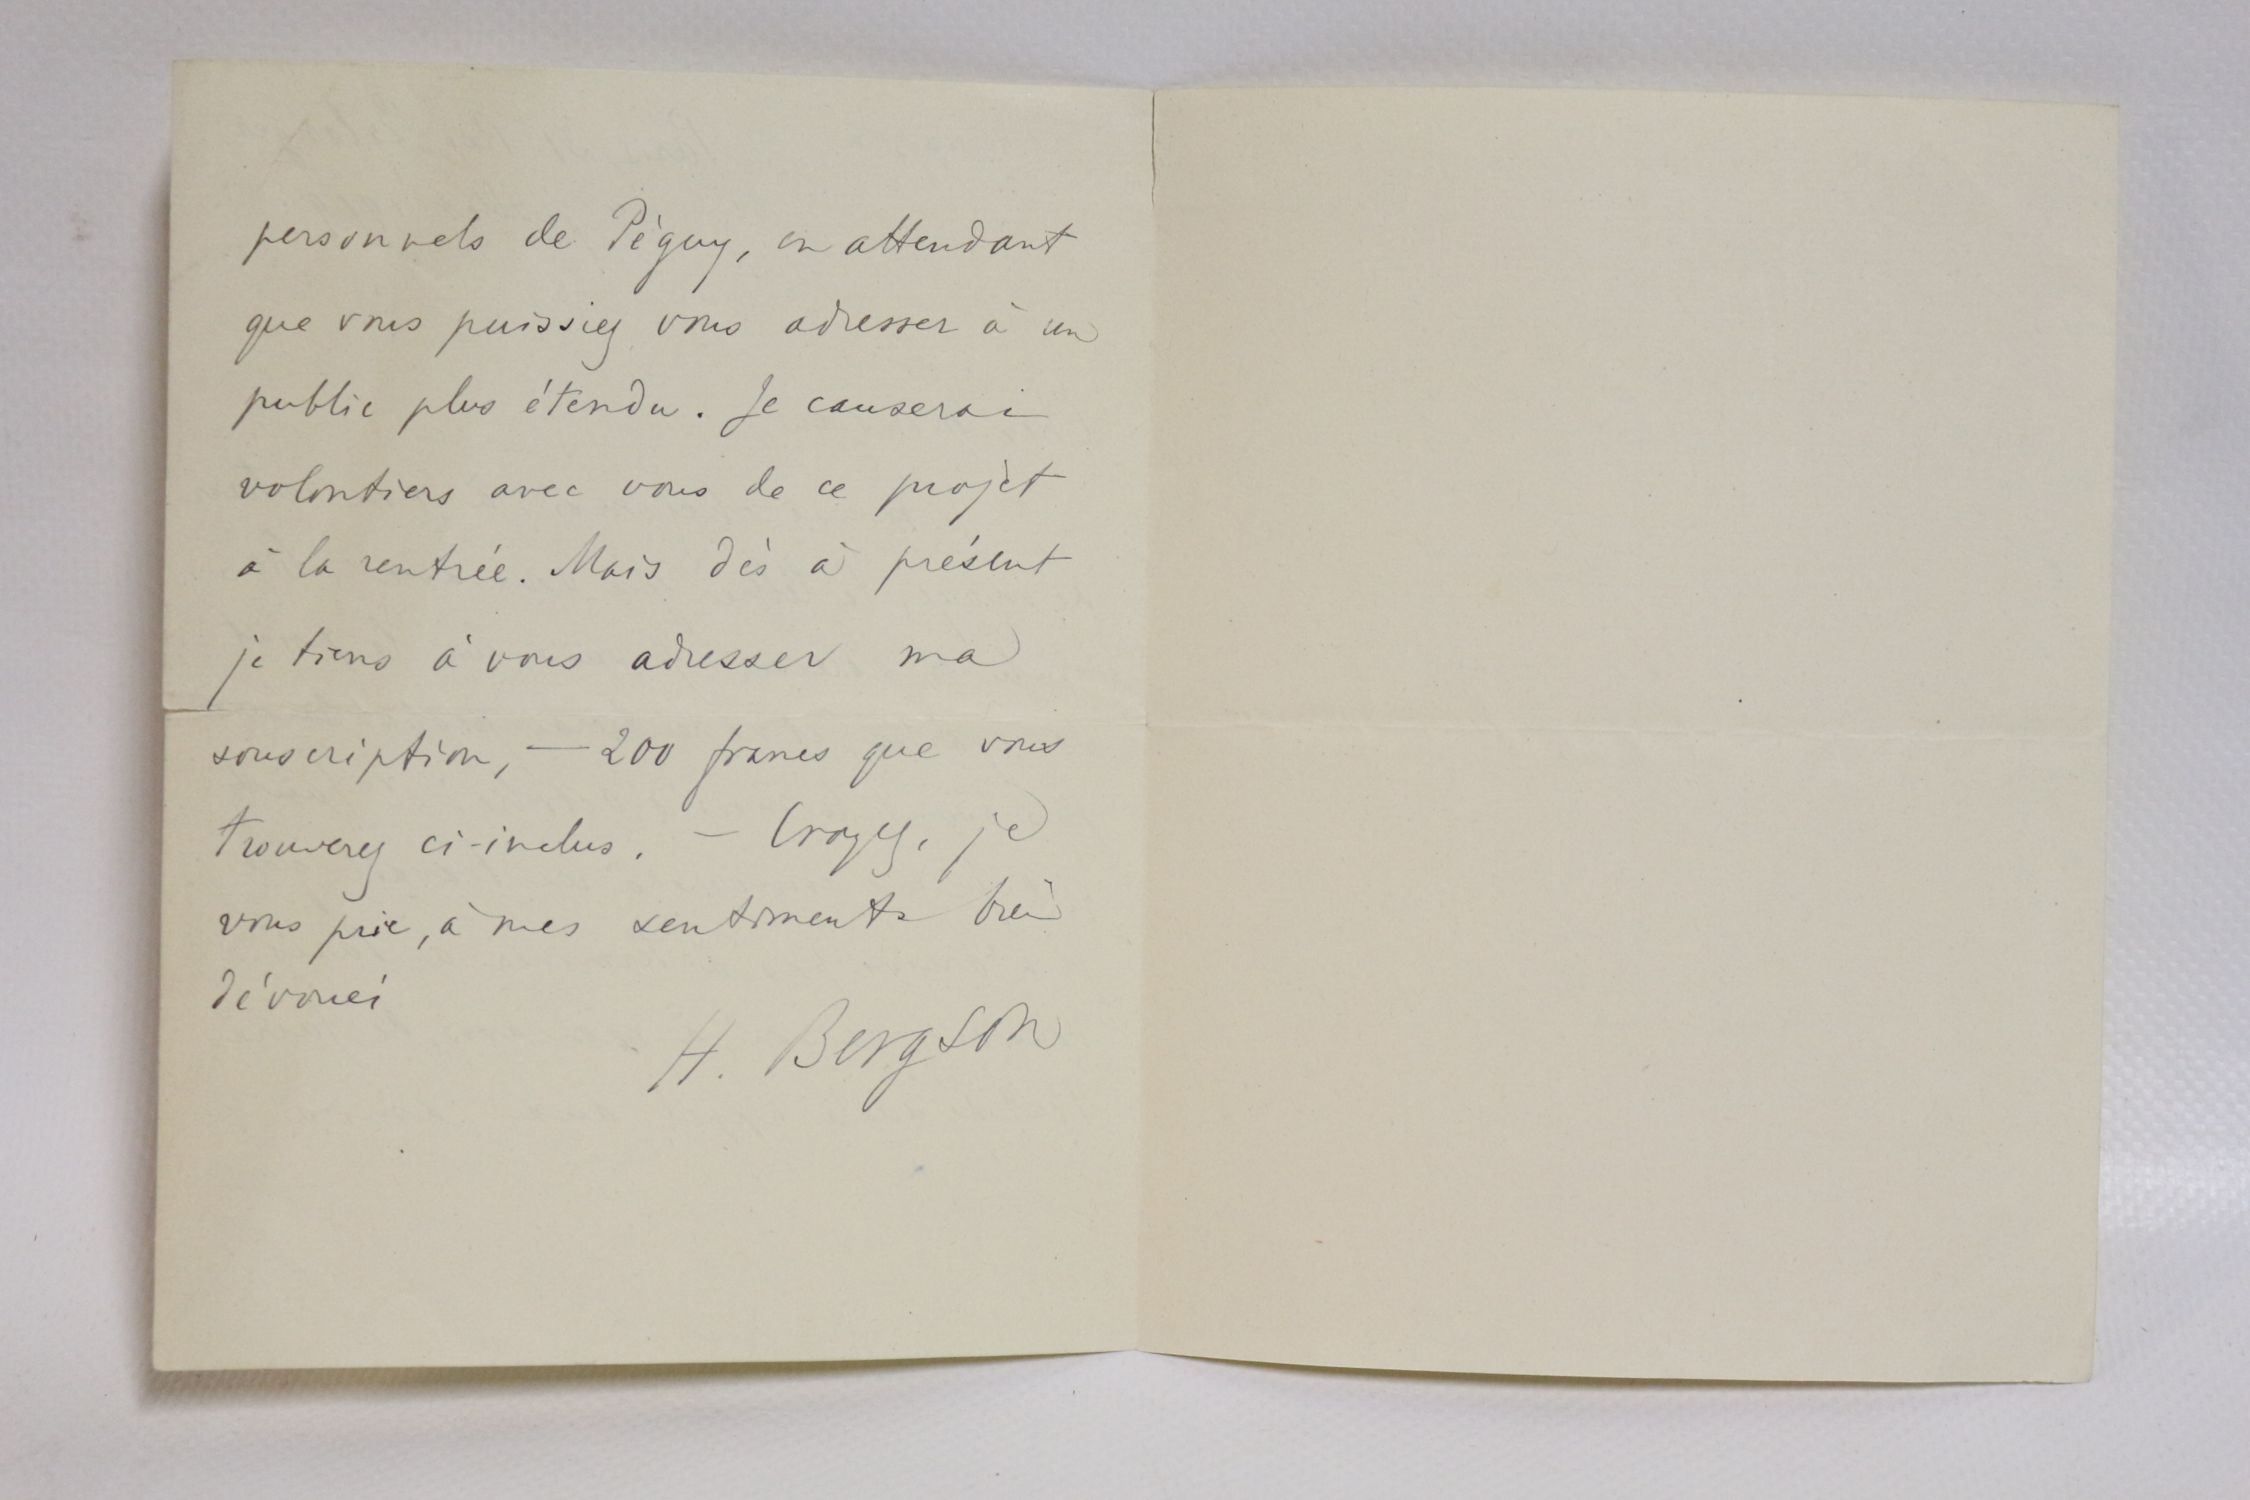 personnels de Péguy, en attendant
que vous puissiez vous adresser à un
public plus étendu. Je causerai
volontiers avec vous de ce projet
à la rentrée. Mais dès à présent
je tiens à vous adresser ma
souscription, — 200 francs que vous
trouverez ci-inclus. — Croyez, je
vous prie, à mes sentiments bien
dévoués
H. Bergson